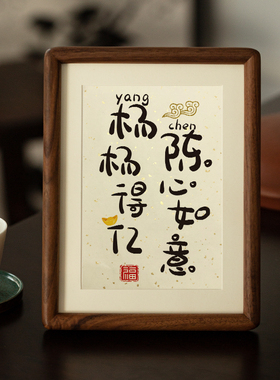 chen
陈心如意
yang
杨杨得亿
福